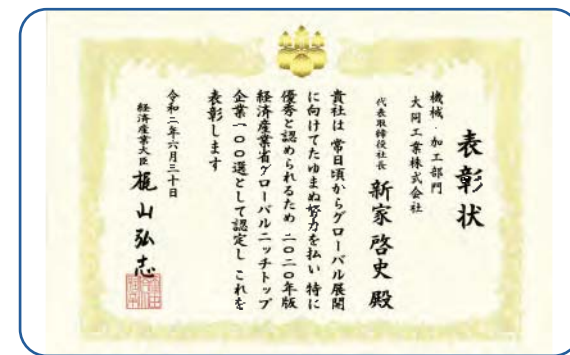 表彰状
機械・加工部門
大同工業株式会社
代表取締役社長 新家啓史殿
貴社は 常日頃からグローバル展開
に向けてたゆまぬ努力を払い 特に
優秀と認められるため 二〇二〇年版
経済産業省グローバルニッチトップ
企業一〇〇選として認定し これを
表彰します
令和二年六月三十日
経済産業大臣 梶山弘志